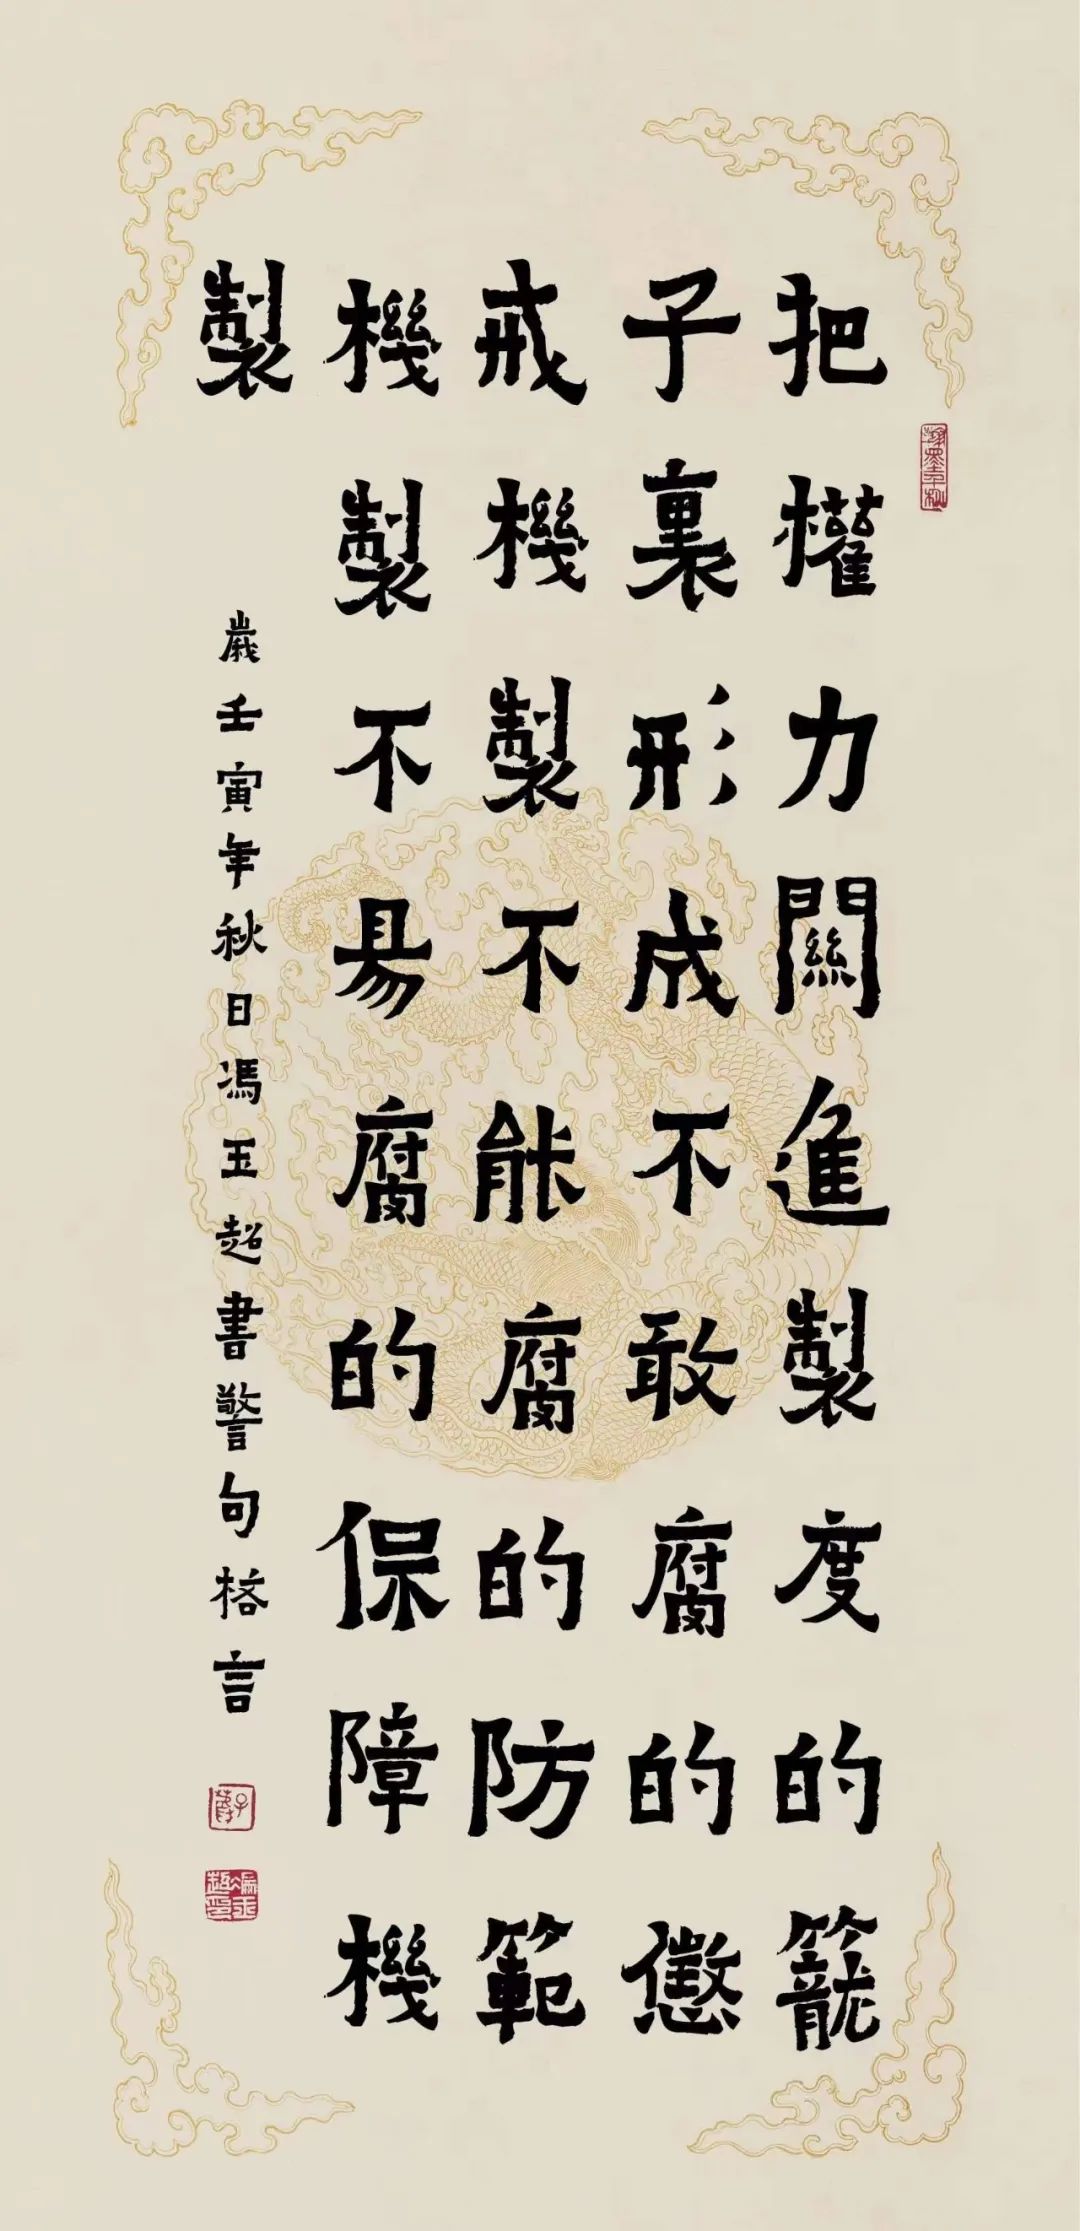 翰墨千秋
把權力關進製度的籠
子裏形成不敢腐的懲
戒機製不能腐的防範
機製不易腐的保障機
製
歲壬寅年秋日馮玉超書警句格言
馮玉超印